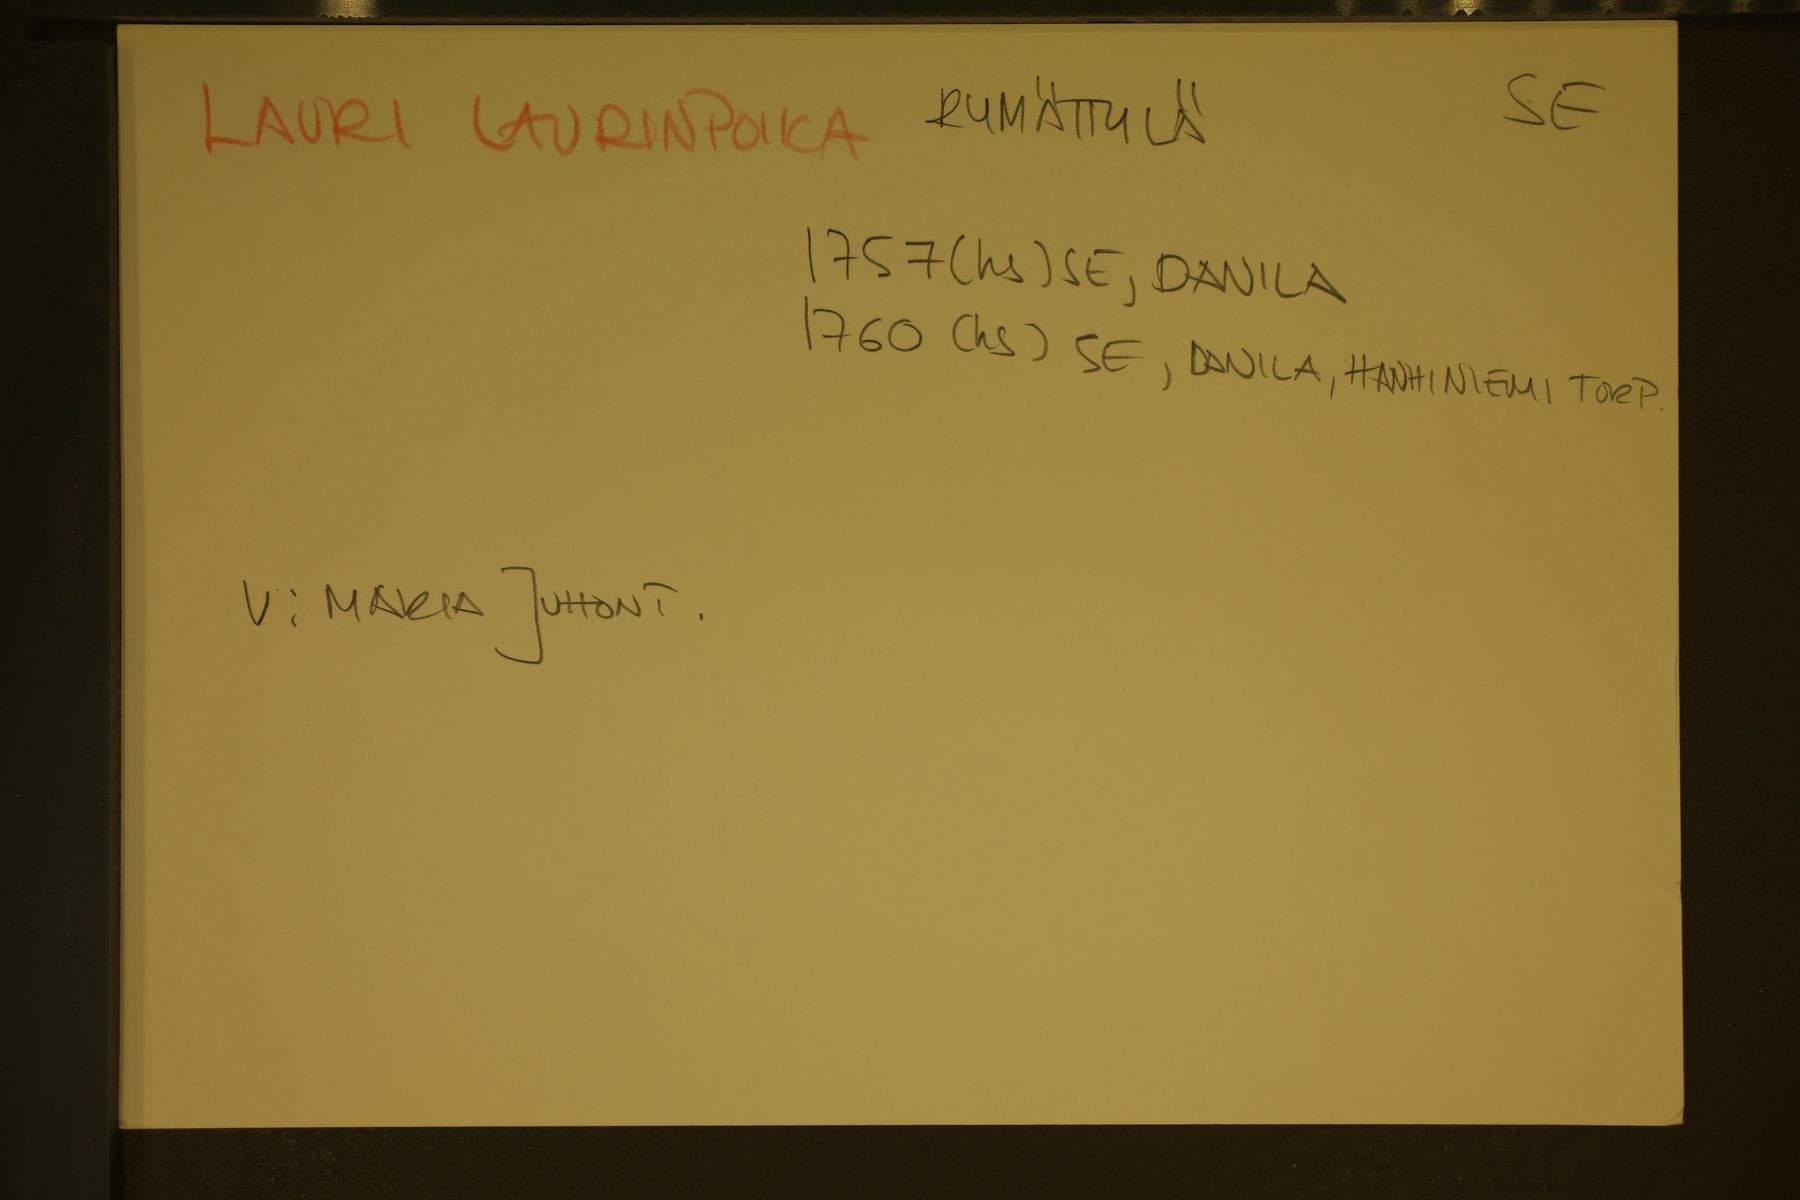 LAURI LAURINPOIKA RYMÄTTYLÄ SE
1757 (hs) SE, DANILA
1760 (hs) SE, DANILA, HANHINIEMI TORP.
V: MARIA JUHONT.